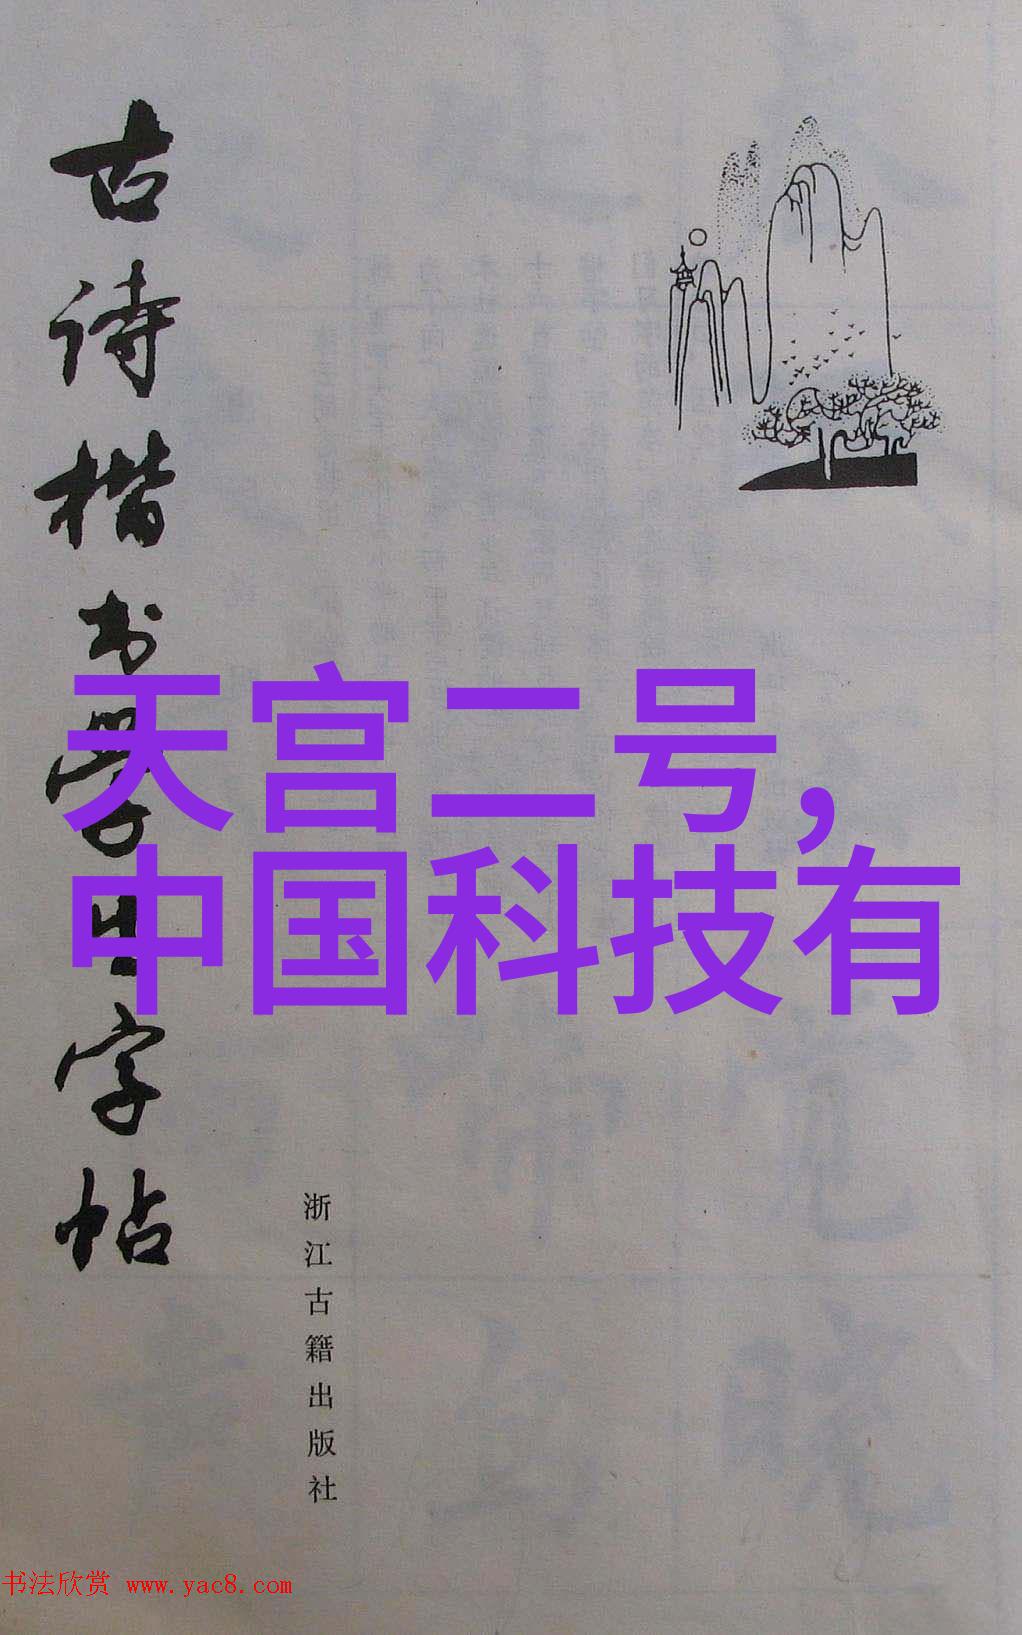 古诗楷书学生字帖
天宫二号，
中国科技有
浙江古籍出版社
书法欣赏 www.yac8.com